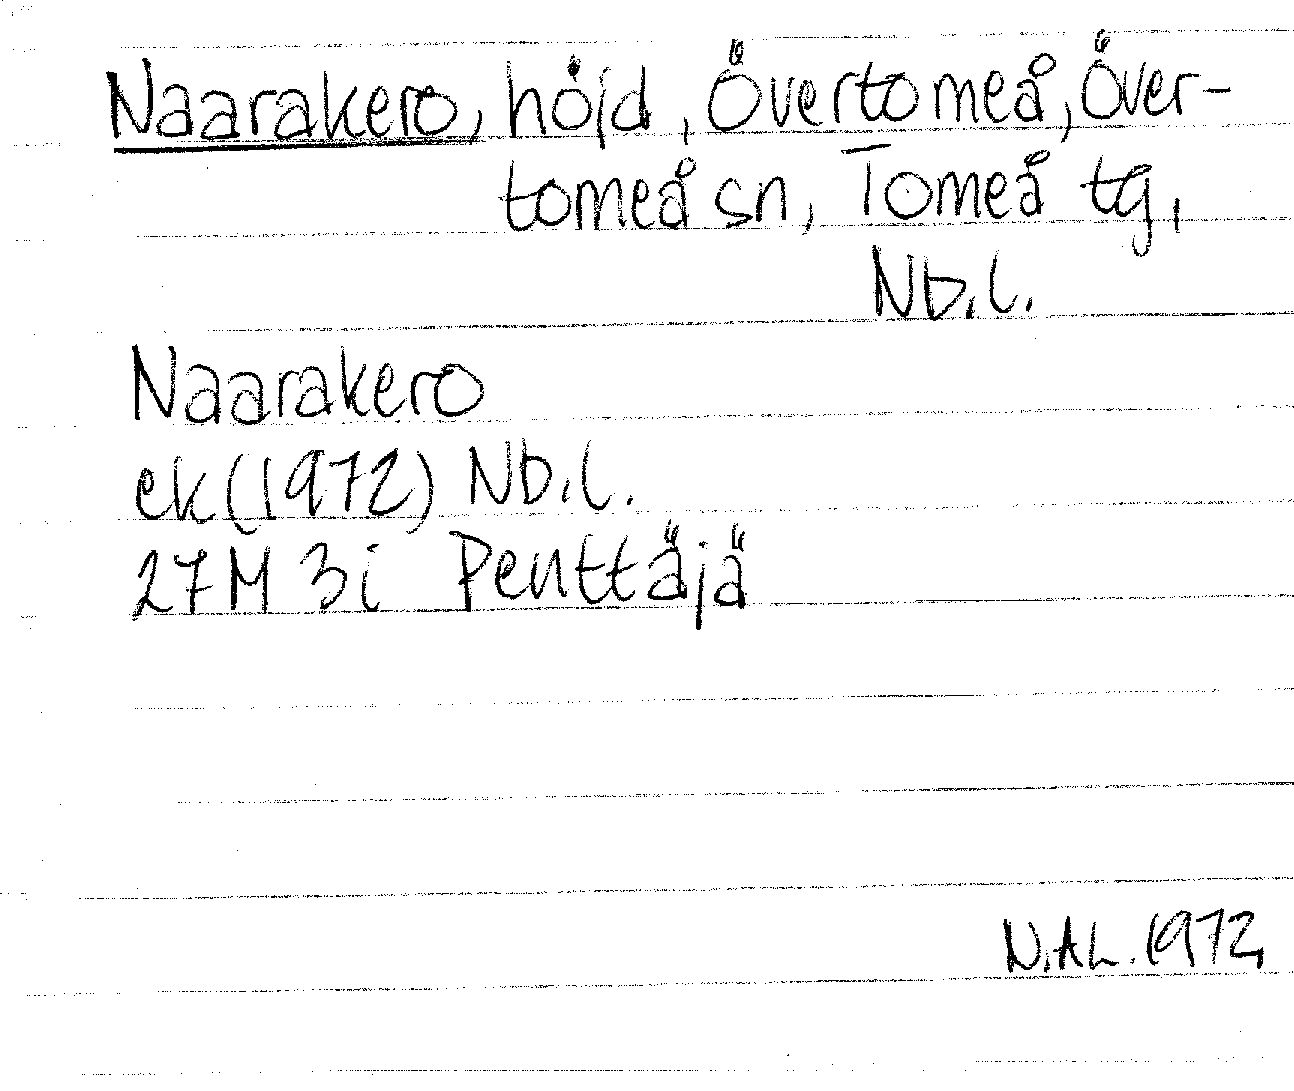 Naarakero, höjd, Övertorneå, Över-
torneå sn, Torneå tg,
Nb.l.
Naarakero
ek (1972) Nb.l.
27M 3i Penttäjä
N.Ah. 1972